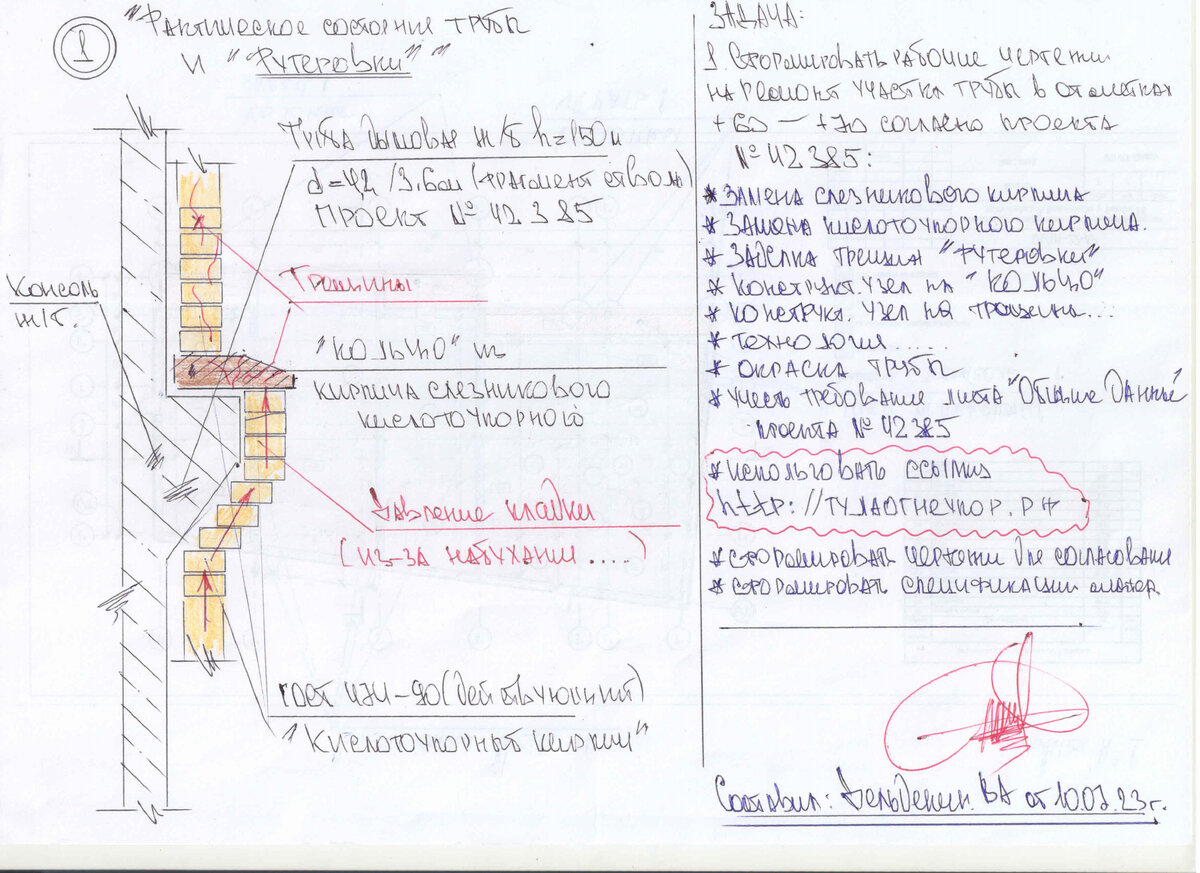 1
"Фактическое состояние трубы
и "Футеровки""
Труба дымовая ж/б h=150м
d=4,2 /9.6м (фрагмент ствола)
Проект № 42385
Трещины
Консоль
ж/б.
"Кольцо" из
кирпича слезникового
кислотоупорного
Давление кладки
(из-за набухания ....)
ГОСТ 474-90 (действующий)
"Кислотоупорный кирпич"
Задача:
1. Сформировать рабочие чертежи
на ремонт участка трубы в отметках
+60 — +70 согласно проекта
№ 42385:
* Замена слезникового кирпича
* Замена кислотоупорного кирпича.
* Заделка трещин "футеровки"
* Конструкт. узел на "кольцо"
* Конструк. узел на трещины...
* Технология .....
* Окраска трубы
* Учесть требование листа "Общие данные"
проекта № 42385
* использовать ссылку
http://тулаогнеупор.рф
* Сформировать чертежи для согласования
* Сформировать спецификации матер.
Составил: ВА от 10.07.23г.